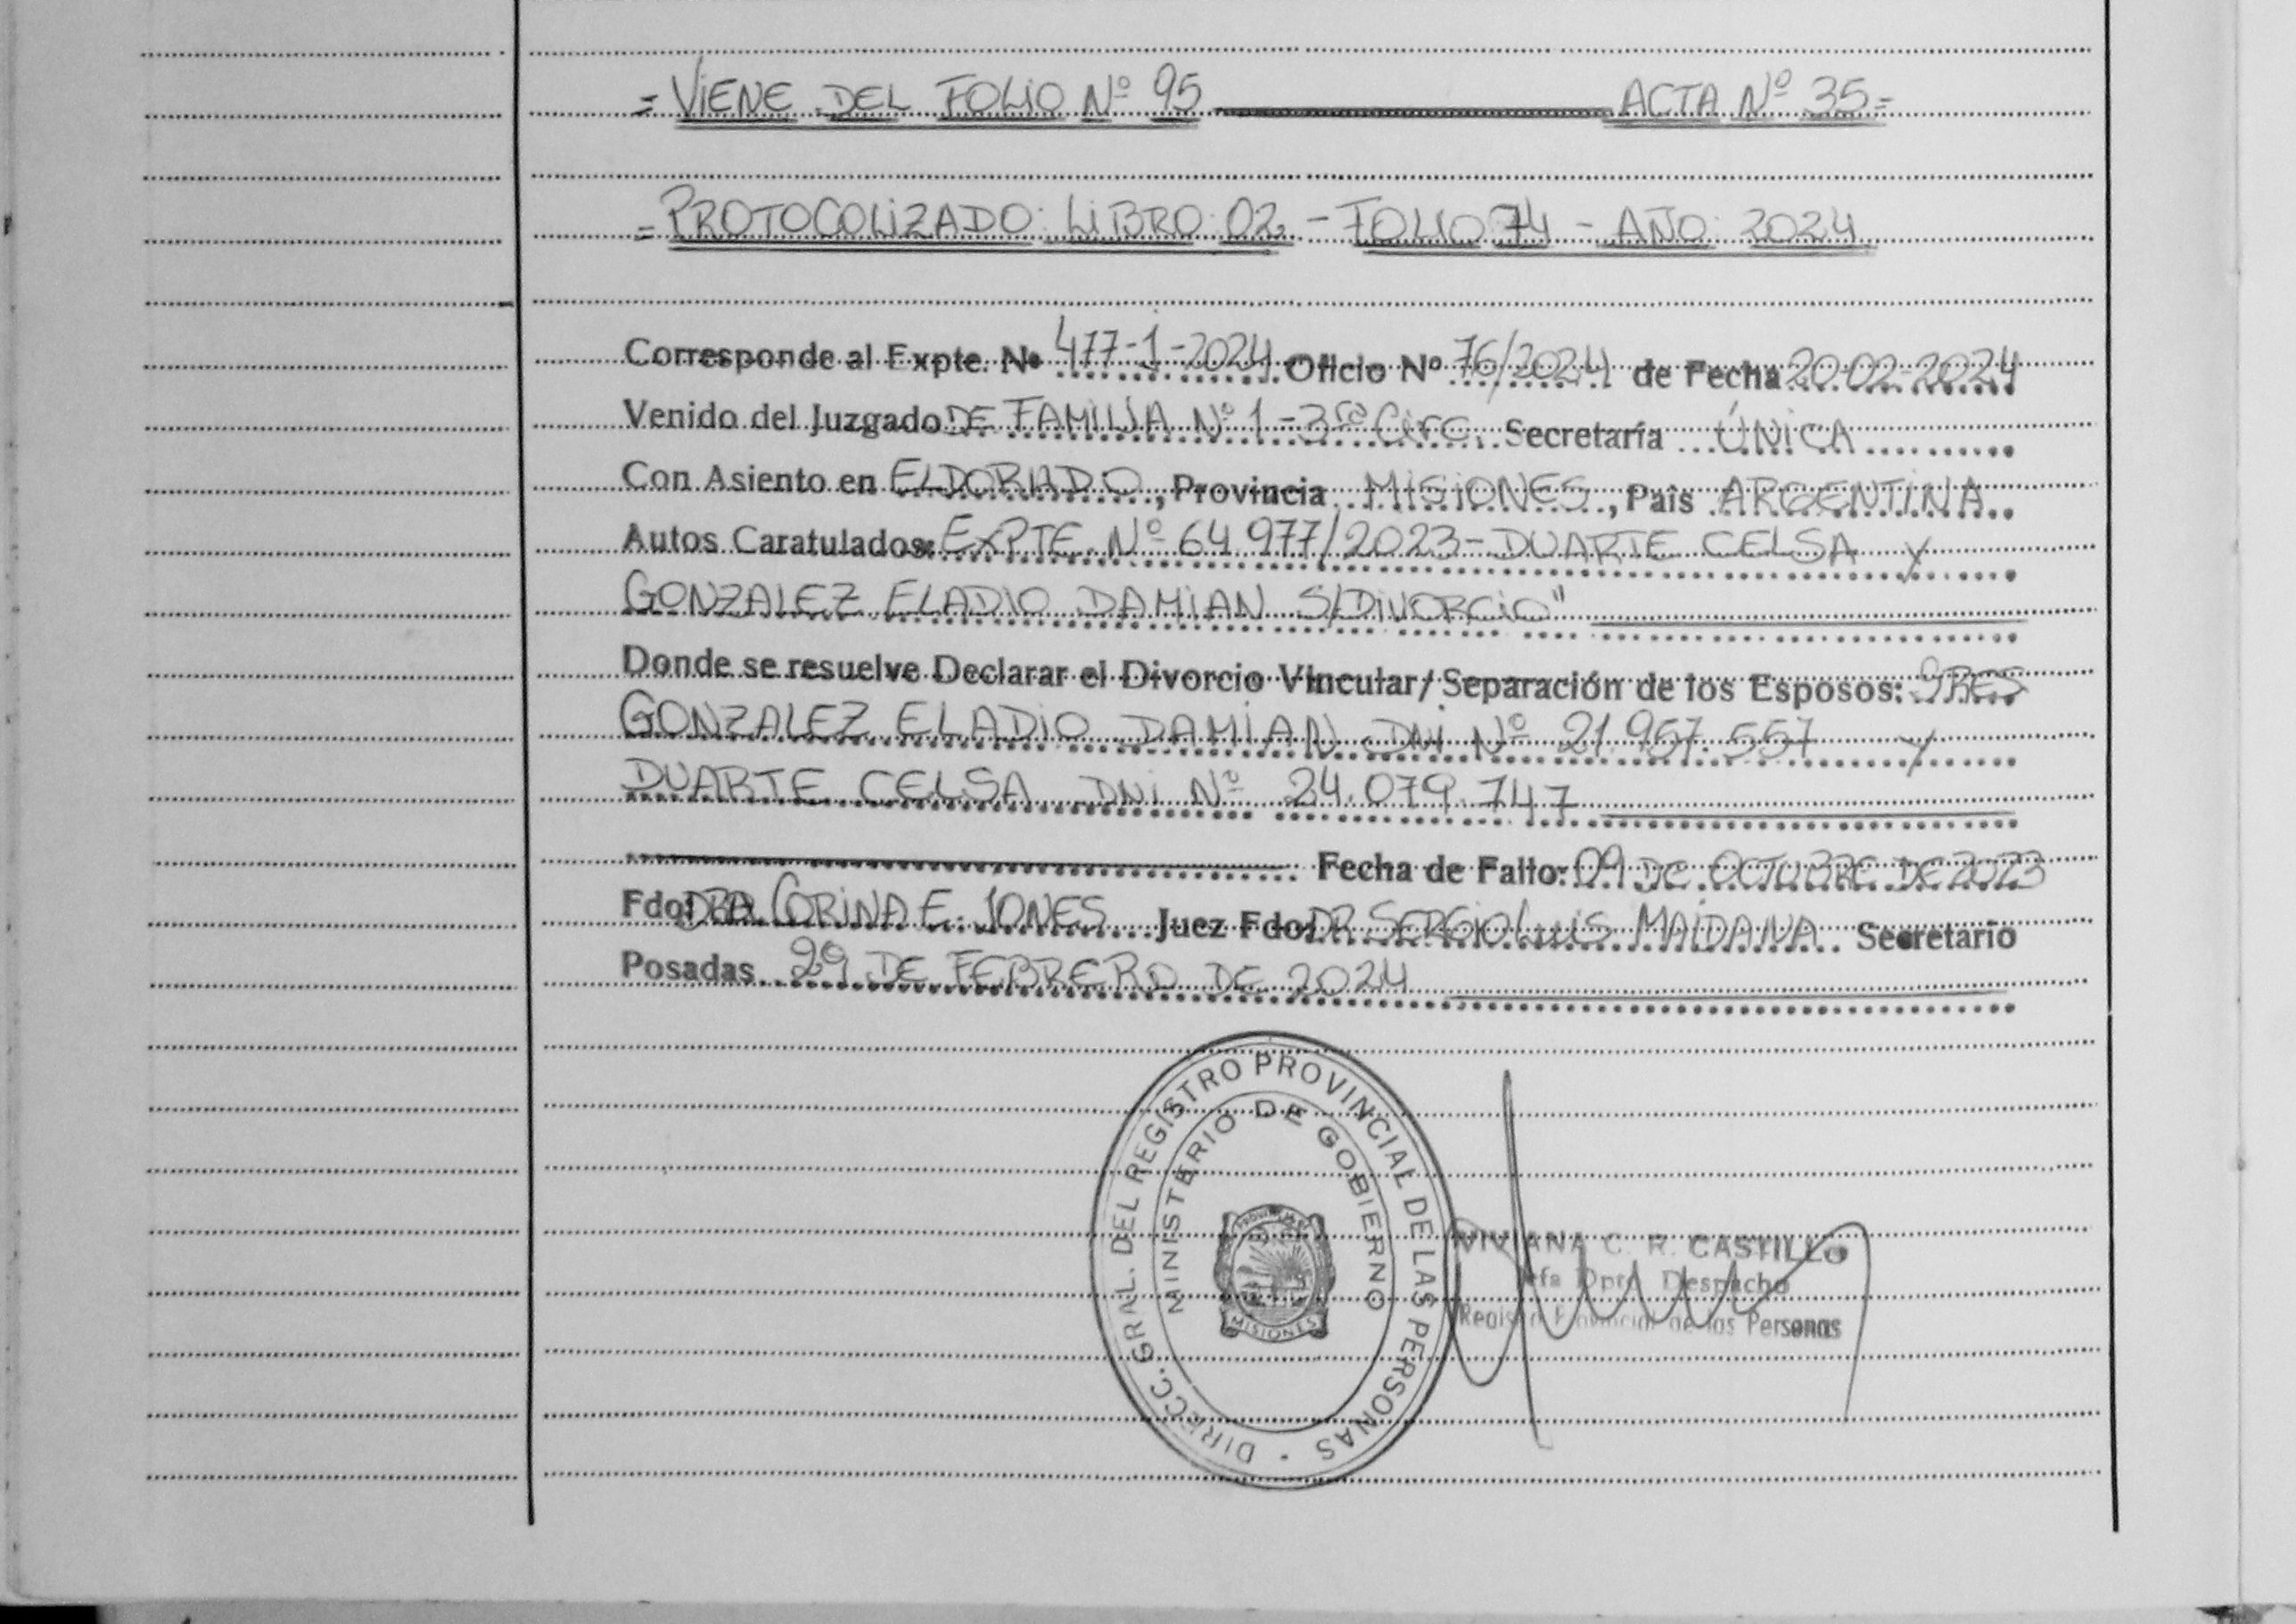 = VIENE DEL FOLIO Nº 95 ACTA Nº 35=
= PROTOCOLIZADO: LIBRO: 02 - FOLIO 74 - AÑO: 2024
Corresponde al Expte. Nº 477-1-2024 Oficio Nº 76/2024 de Fecha 20-02-2024
Venido del Juzgado DE FAMILIA Nº 1 - 3ra Circ. Secretaría ÚNICA
Con Asiento en ELDORADO, Provincia MISIONES, País ARGENTINA
Autos Caratulados: EXPTE. Nº 64.977/2023 - DUARTE CELSA Y
GONZALEZ ELADIO DAMIAN S/DIVORCIO"
Donde se resuelve Declarar el Divorcio Vincular/Separación de los Esposos: SRES
GONZALEZ ELADIO DAMIAN DNI Nº 21.967.557 Y
DUARTE CELSA DNI Nº 24.079.747
Fecha de Fallo: 09 DE OCTUBRE DE 2023
Fdo: DRA. CORINA E. JONES Juez Fdo: DR SERGIO LUIS MAIDANA Secretario
Posadas 29 DE FEBRERO DE 2024
DIRECC. GRAL. DEL REGISTRO PROVINCIAL DE LAS PERSONAS
MINISTERIO DE GOBIERNO
MISIONES
VIVIANA C. R. CASTILLO
Jefa Dpto. Despacho
Registro Provincial de las Personas